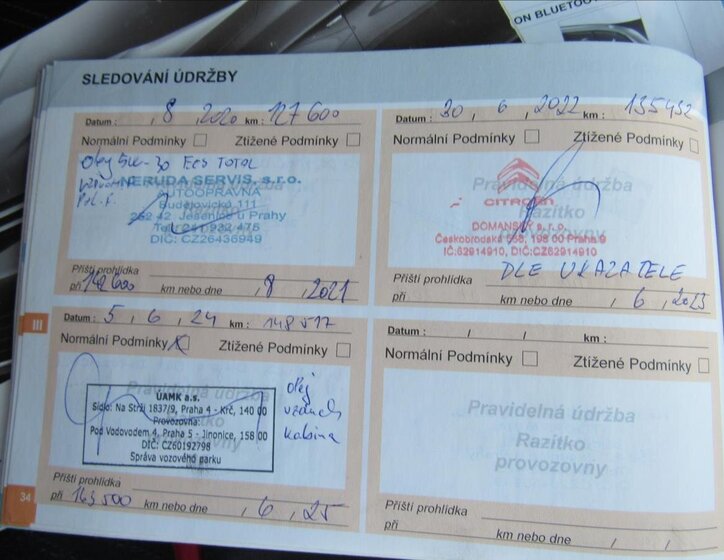 ON BLUETOOT
SLEDOVÁNÍ ÚDRŽBY
Datum : , 8 , 2020 km : 127 600
Normální Podmínky Ztížené Podmínky
Olej 5W-30 ECS TOTAL
NERUDA SERVIS, s.r.o.
AUTOOPRAVNA
Budějovická 111
252 42 Jesenice u Prahy
DIČ: CZ26436949
Příští prohlídka
při 142 600 km nebo dne , 8 , 2021
Datum : 30 , 6 , 2022 km : 135432
Normální Podmínky Ztížené Podmínky
Pravidelná údržba
Razítko
provozovny
CITROËN
DOMANSKÝ s.r.o.
Českobrodská 556, 198 00 Praha 9
IČ:62914910, DIČ:CZ62914910
Příští prohlídka DLE UKAZATELE
při km nebo dne , 6 , 2023
III
Datum : 5 , 6 , 24 km : 148 517
Normální Podmínky X Ztížené Podmínky
Pravidelná údržba
Razítko
provozovny
ÚAMK a.s.
Sídlo: Na Strži 1837/9, Praha 4 - Krč, 140 00
Provozovna:
Pod Vodovodem 4, Praha 5 - Jinonice, 158 00
DIČ: CZ60192798
Správa vozového parku
olej
vzduch
kabina
Příští prohlídka
při 163 500 km nebo dne , 6 , 25
Datum : / / km :
Normální Podmínky Ztížené Podmínky
Pravidelná údržba
Razítko
provozovny
Příští prohlídka
při km nebo dne / /
34